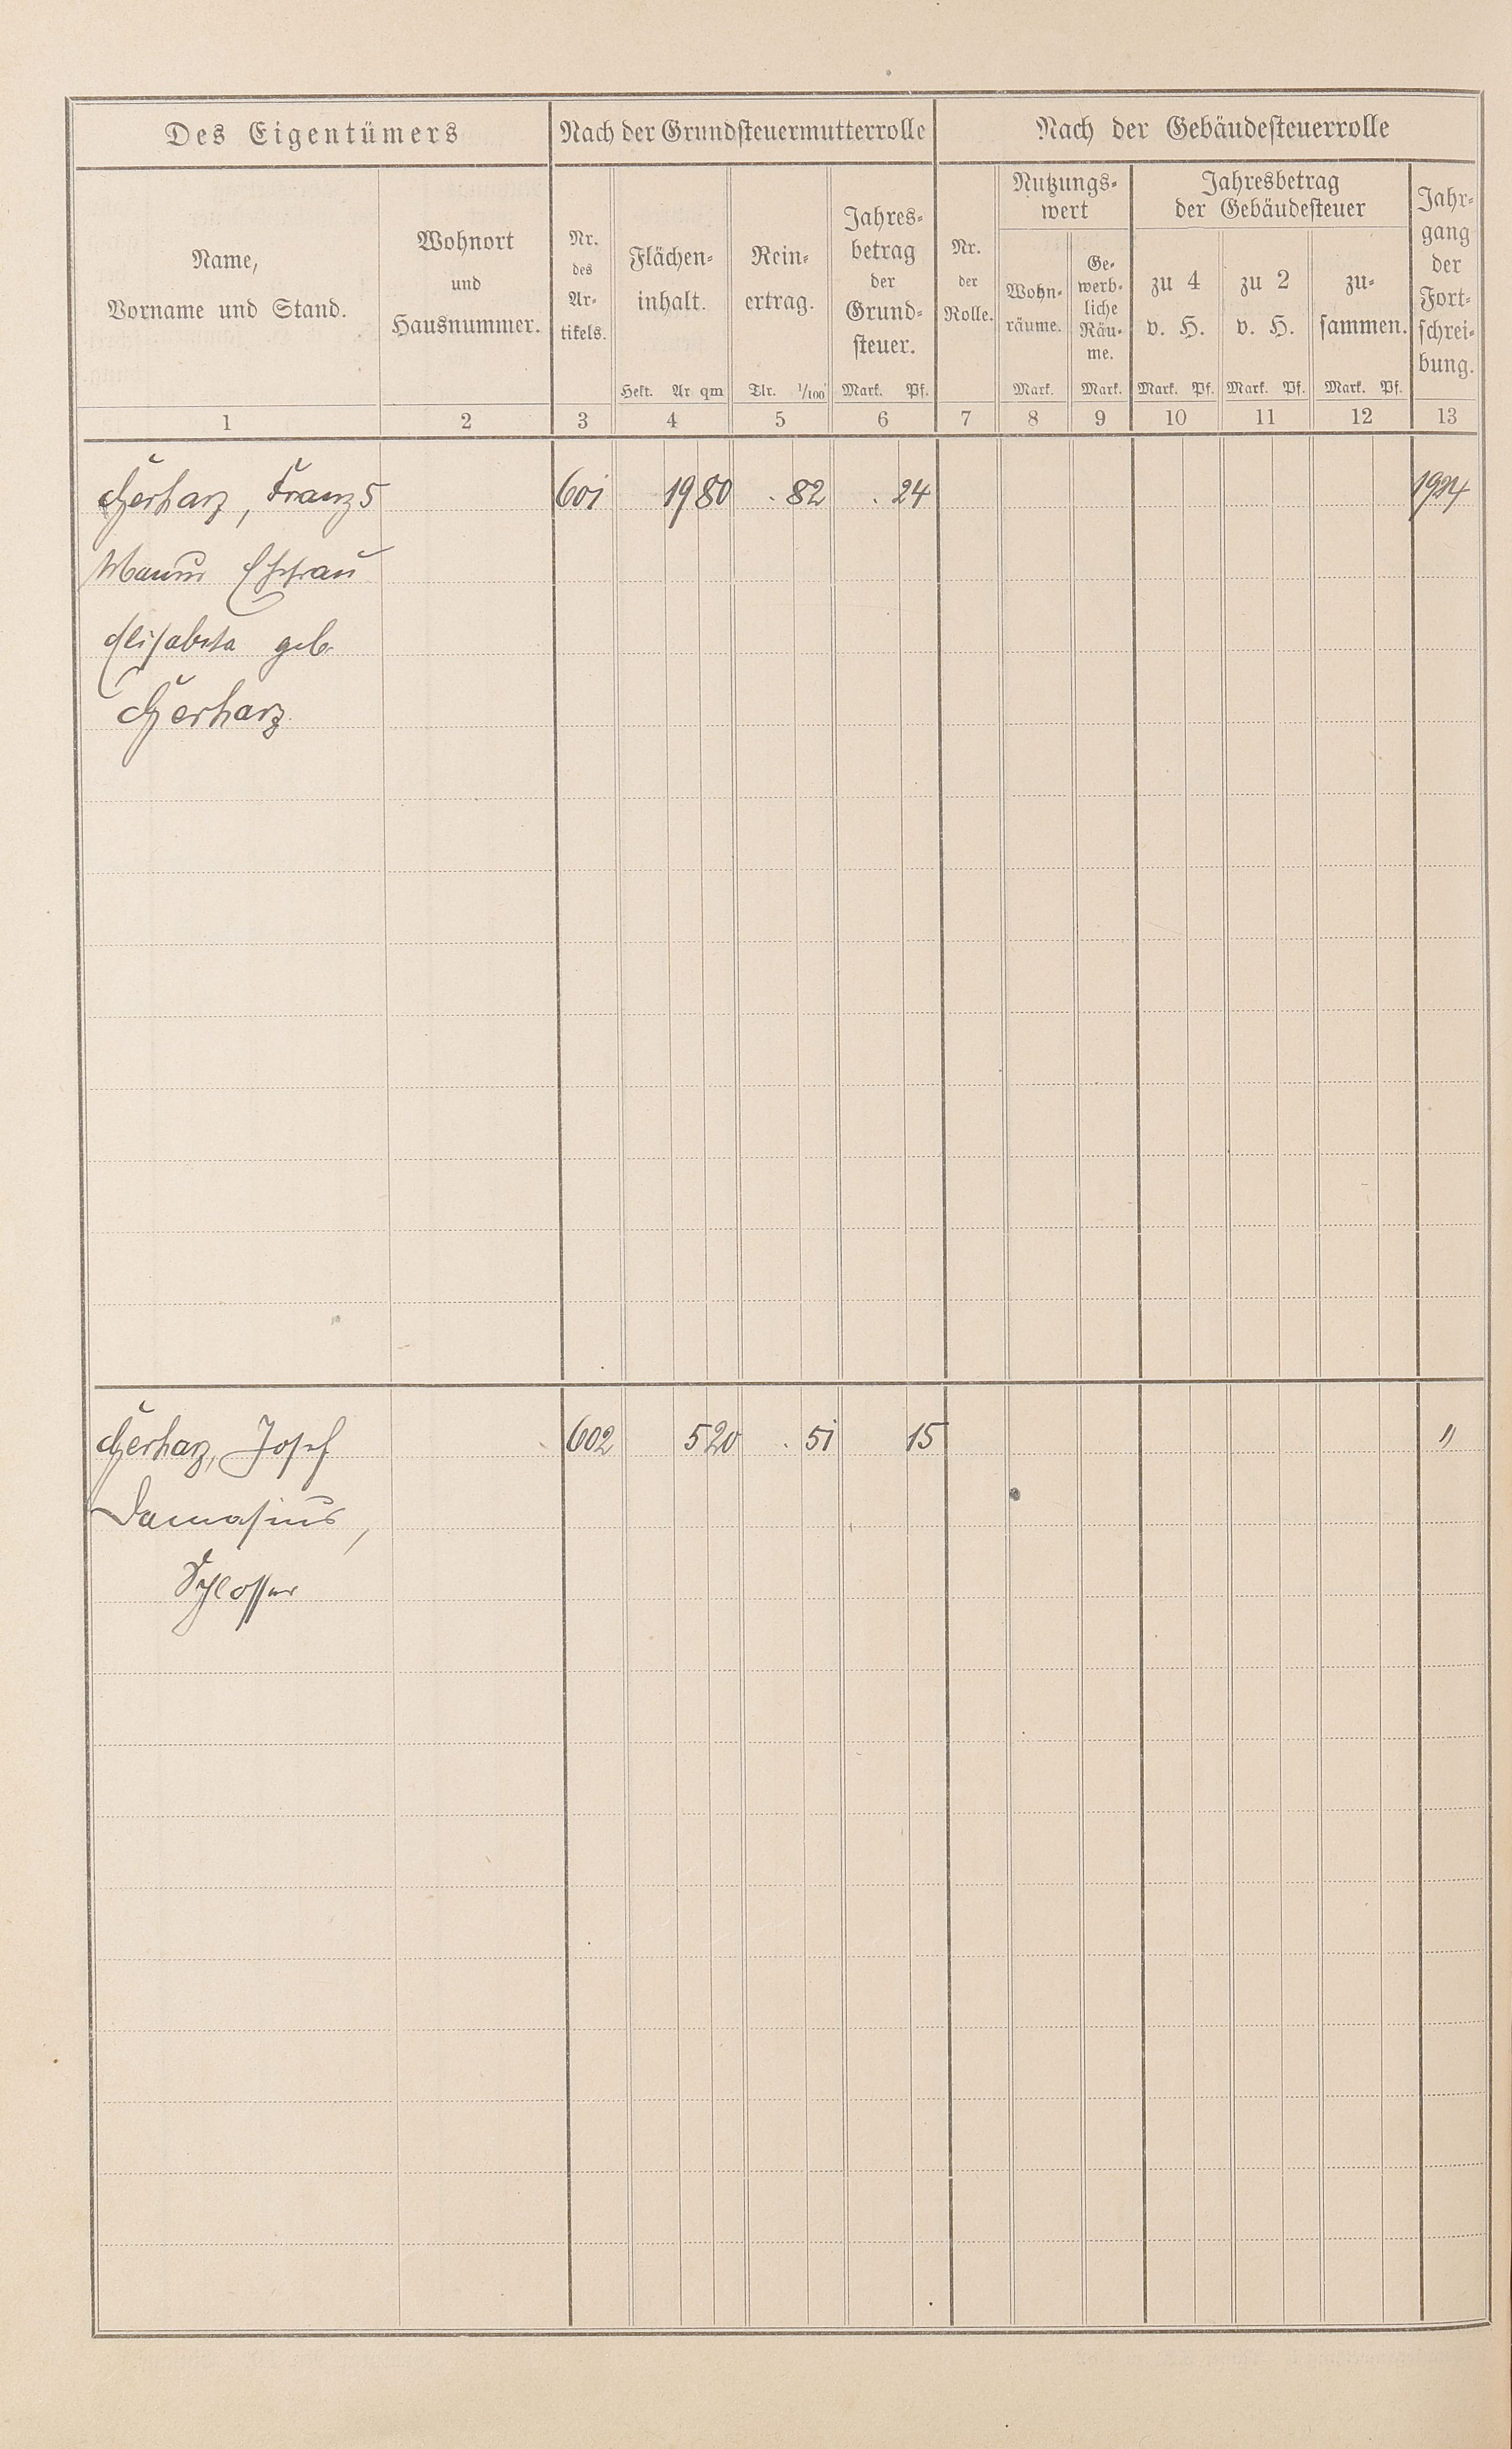 Des Eigentümers Nach der Grundsteuermutterrolle Nach der Gebäudesteuerrolle
Name,
Vorname und Stand.
Wohnort
und
Hausnummer.
Nr.
des
Ar-
tikels.
Flächen-
inhalt.
Hekt. Ar qm
Rein-
ertrag.
Tlr. 1/100
Jahres-
betrag
der
Grund-
steuer.
Mark. Pf.
Nr.
der
Rolle.
Nutzungs-
wert
Wohn-
räume.
Mark.
Ge-
werb-
liche
Räu-
me.
Mark.
Jahresbetrag
der Gebäudesteuer
zu 4
v. H.
Mark. Pf.
zu 2
v. H.
Mark. Pf.
zu-
sammen.
Mark. Pf.
Jahr-
gang
der
Fort-
schrei-
bung.
1 2 3 4 5 6 7 8 9 10 11 12 13
Gerharz, Franz 5 601 19 80 . 82 . 24 1924
Ehefrau
Elisabeta geb.
Gerharz
Gerharz, Josef 602 5 20 . 51 15 "
Damasius,
Schlosser